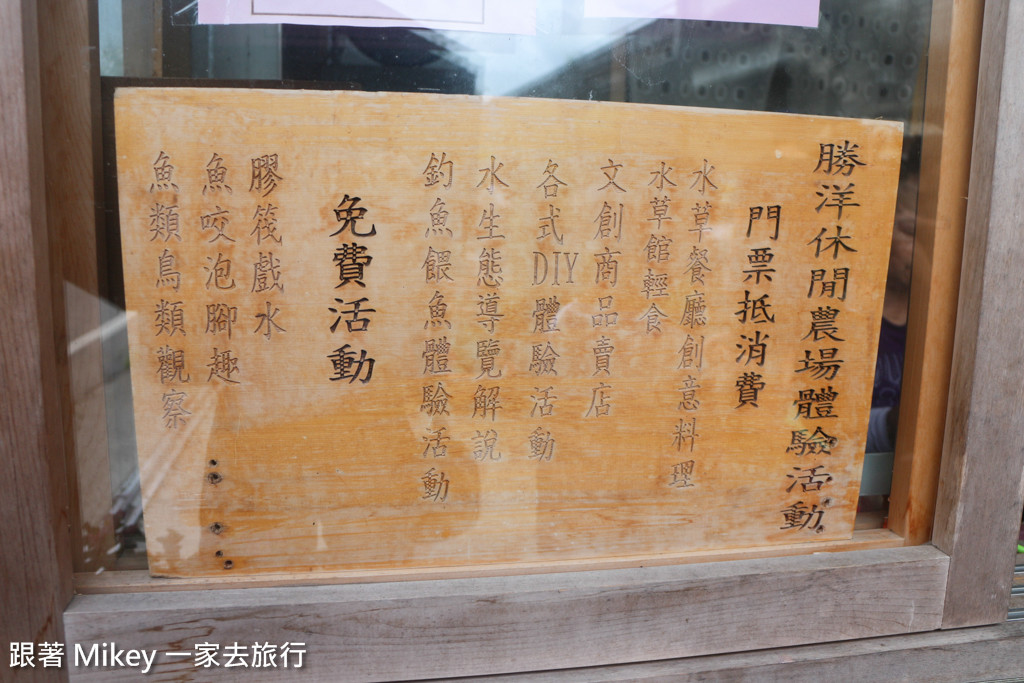 勝洋休閒農場體驗活動
門票抵消費
水草餐廳創意料理
水草館輕食
文創商品賣店
各式DIY體驗活動
水生態導覽解說
釣魚餵魚體驗活動
免費活動
膠筏戲水
魚咬泡腳趣
魚類鳥類觀察
跟著 Mikey 一家去旅行